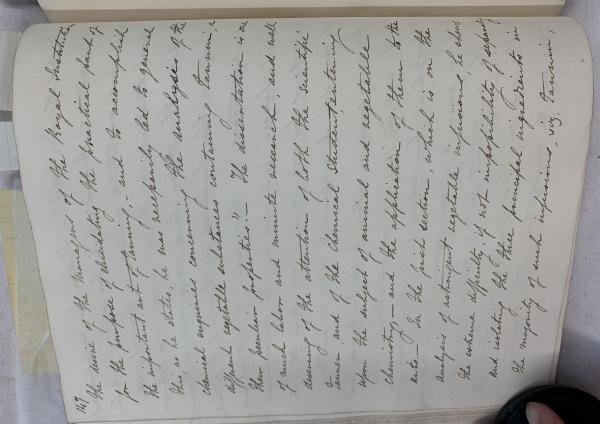 147
the desire of the managers of the Royal Institution
for the purpose of elucidating the practical part of
the important art of tanning, – and to accomplish
this, as he states, he was necessarily led to general
chemical enquiries concerning the analysis of the
different vegetable substances containing tannin, &
their peculiar properties." – The dissertation is one
of much labor and minute research, and well
deserving of the attention of both the scientific
tanner and of the chemical student entering
upon the subject of animal and vegetable
chemistry – and the application of them to the
arts – In the first section, which is on the
analysis of astringent vegetable infusions, he shews
the extreme difficulty, if not impossibility of separating
and isolating the three principal ingredients in
the majority of such infusions, viz. Tannin,